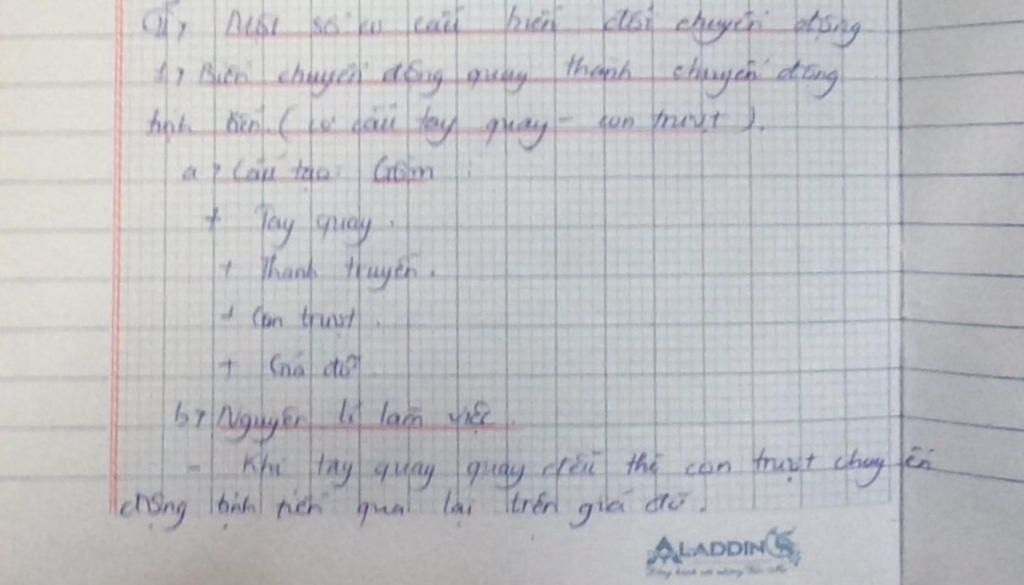 II, Một số cơ cấu biến đổi chuyển động
1, Biến chuyển động quay thành chuyển động
tịnh tiến (cơ cấu tay quay - con trượt).
a, Cấu tạo: Gồm:
+ Tay quay.
+ Thanh truyền.
+ Con trượt.
+ Giá đỡ
b, Nguyên lí làm việc.
- Khi tay quay quay đều thì con trượt chuyển
động tịnh tiến qua lại trên giá đỡ.
ALADDIN